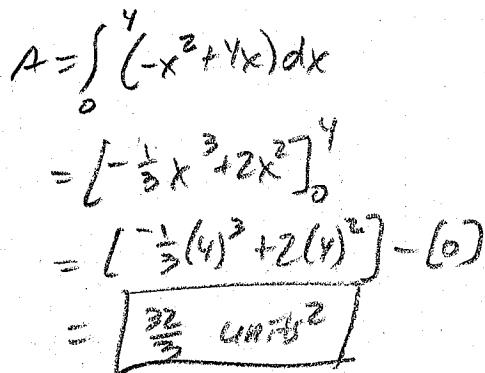 A = ∫₀⁴ (-x² + 4x) dx
= [-⅓x³ + 2x²]₀⁴
= [-⅓(4)³ + 2(4)²] - [0]
= 32/3 units²